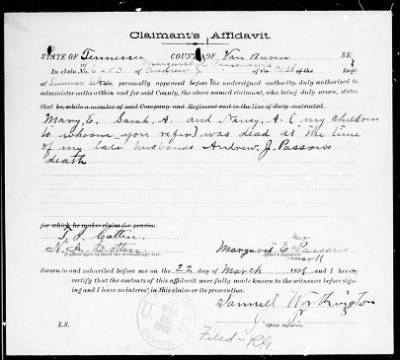 Claimant's Affidavit.
STATE OF Tennessee COUNTY OF Van Buren SS:
In claim No. 6253 of Andrew J of Co.
personally appeared before the undersigned authority duly authorized to
administer oaths within and for said County, the above named claimant, who being duly sworn, states
that he, while a member of said Company and Regiment and in the line of duty contracted,
Mary, E. Sarah, A. and Nancy, A. (my children
to whom you refer) was dead at the time
of my late husbands Andrew. J. Passons
death
for which he makes claim for pension.
T. J. Cotten.
N. A. Cotten her
Margaret E Passons
mark
Sworn to and subscribed before me on the 22 day of March 1898 and I hereby
certify that the contents of this affidavit were fully made known to the witnesses before signing
and I have no interest in this claim or its prosecution.
Samuel Worthington
L.S. Official signature.
Filed-